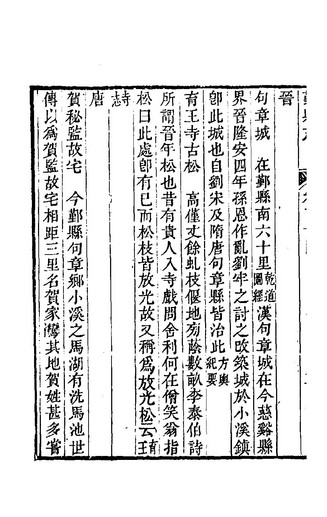 晉
句章城　在鄞縣南六十里乾道圖經漢句章城在今慈谿縣
界晉隆安四年孫恩作亂劉牢之討之改築城於小溪鎮
卽此城也自劉宋及隋唐句章縣皆治此方輿紀要
育王寺古松　高僅丈餘虬枝偃地蔭數畝李泰伯詩
所謂晉年松也昔有貴人入寺戲問舍利何在僧笑翁指
松曰此處卽有已而松枝皆放光故又稱爲放光松云育王
志
唐
賀秘監故宅　今鄞縣句章鄉小溪之馬湖有洗馬池世
傳以爲賀監故宅相距三里名賀家灣其地賀姓甚多嘗